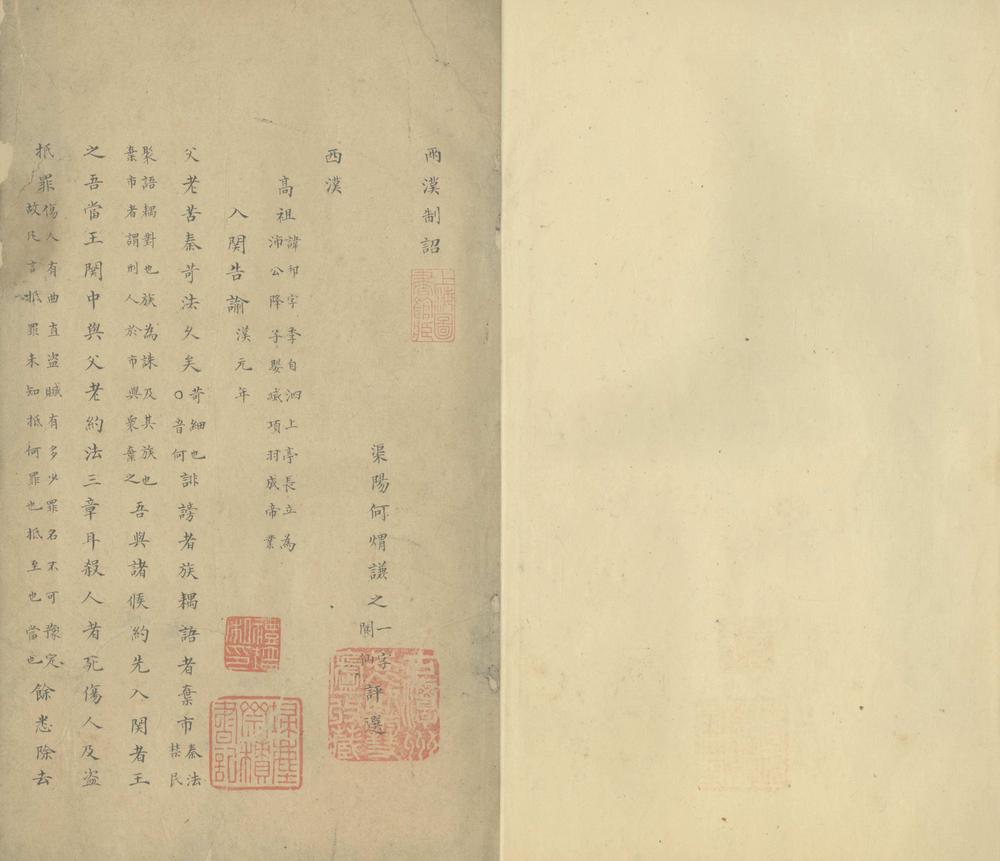 兩漢制詔
渠陽何焆謙之一字関仙評選
西漢
高祖諱邦字季自泗上亭長立為沛公降子嬰滅項羽成帝業
入関告諭漢元年
父老苦秦苛法久矣苛細也○音何誹謗者族耦語者棄市秦法禁民
聚語耦對也族為誅及其族也棄市者謂刑人於市與衆棄之吾與諸侯約先入関者王
之吾當王関中與父老約法三章耳殺人者死傷人及盗
抵罪傷人有曲直盗贓有多少罪名不可豫定故凡言抵罪未知抵何罪也抵至也當也餘悉除去